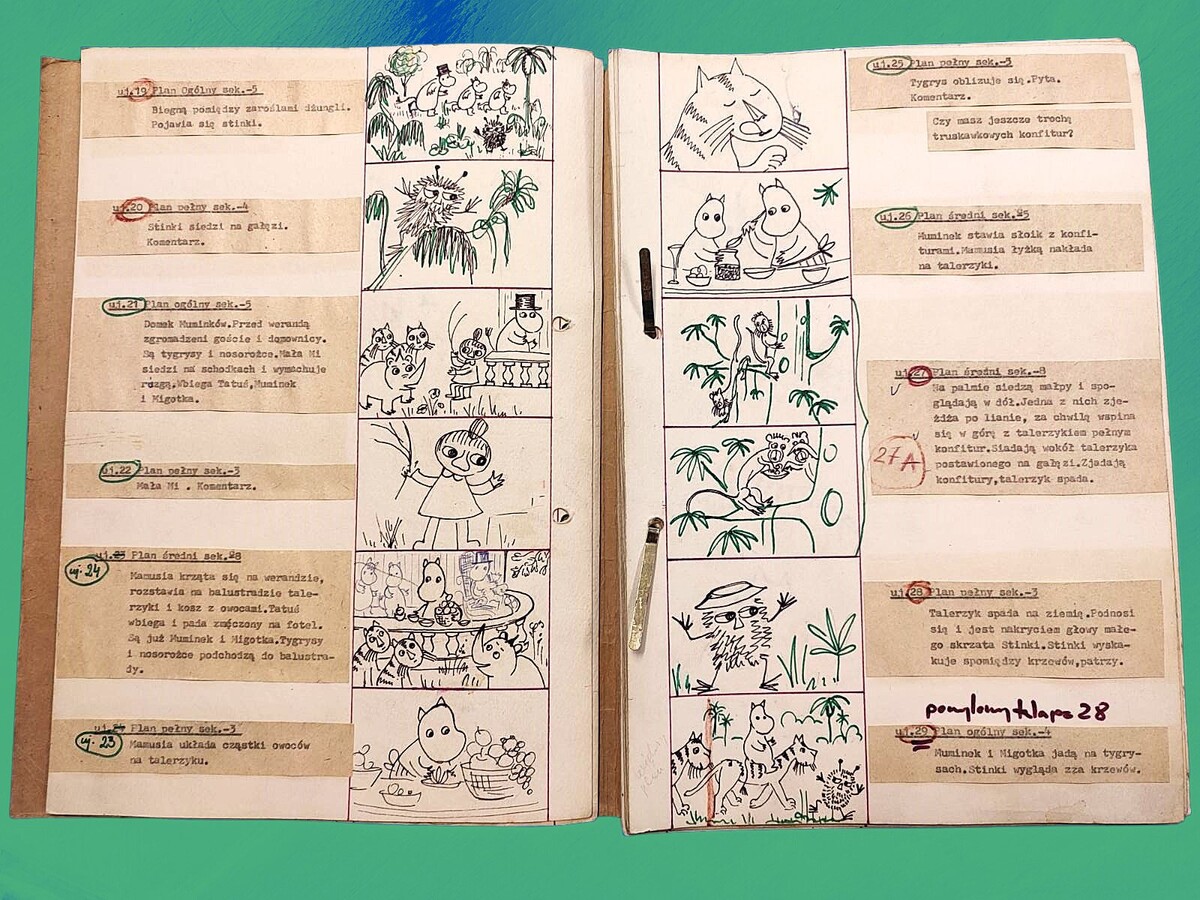 uj.19 Plan Ogólny sek.-5
Biegną pomiędzy zaroślami dżungli.
Pojawia się stinki.
uj.20 Plan pełny sek.-4
Stinki siedzi na gałęzi.
Komentarz.
uj.21 Plan ogólny sek.-5
Domek Muminków.Przed werandą
zgromadzeni goście i domownicy.
Są tygrysy i nosorożce.Mała Mi
siedzi na schodkach i wymachuje
rózgą.Wbiega Tatuś,Muminek
i Migotka.
uj.22 Plan pełny sek.-3
Mała Mi . Komentarz.
uj.23 Plan średni sek.-8
uj. 24
Mamusia krząta się na werandzie,
rozstawia na balustradzie tale-
rzyki i kosz z owocami.Tatuś
wbiega i pada zmęczony na fotel.
Są już Muminek i Migotka.Tygrysy
i nosorożce podchodzą do balustra-
dy.
uj.24 Plan pełny sek.-3
uj. 23
Mamusia układa cząstki owoców
na talerzyku.
uj.25 Plan pełny sek.-3
Tygrys oblizuje się.Pyta.
Komentarz.
Czy masz jeszcze trochę
truskawkowych konfitur?
uj.26 Plan średni sek.-5
Muminek stawia słoik z konfi-
turami.Mamusia łyżką nakłada
na talerzyki.
uj.27 Plan średni sek.-8
Na palmie siedzą małpy i spo-
glądają w dół.Jedna z nich zje-
żdża po lianie, za chwilę wspina
się w górę z talerzykiem pełnym
konfitur.Siadają wokół talerzyka
postawionego na gałęzi.Zjadają
konfitury,talerzyk spada.
27A
uj.28 Plan pełny sek.-3
Talerzyk spada na ziemię.Podnosi
się i jest nakryciem głowy małe-
go skrzata Stinki.Stinki wyska-
kuje spomiędzy krzewów,patrzy.
pomylony klaps 28
uj.29 Plan ogólny sek.-4
Muminek i Migotka jadą na tygry-
sach.Stinki wygląda zza krzewów.